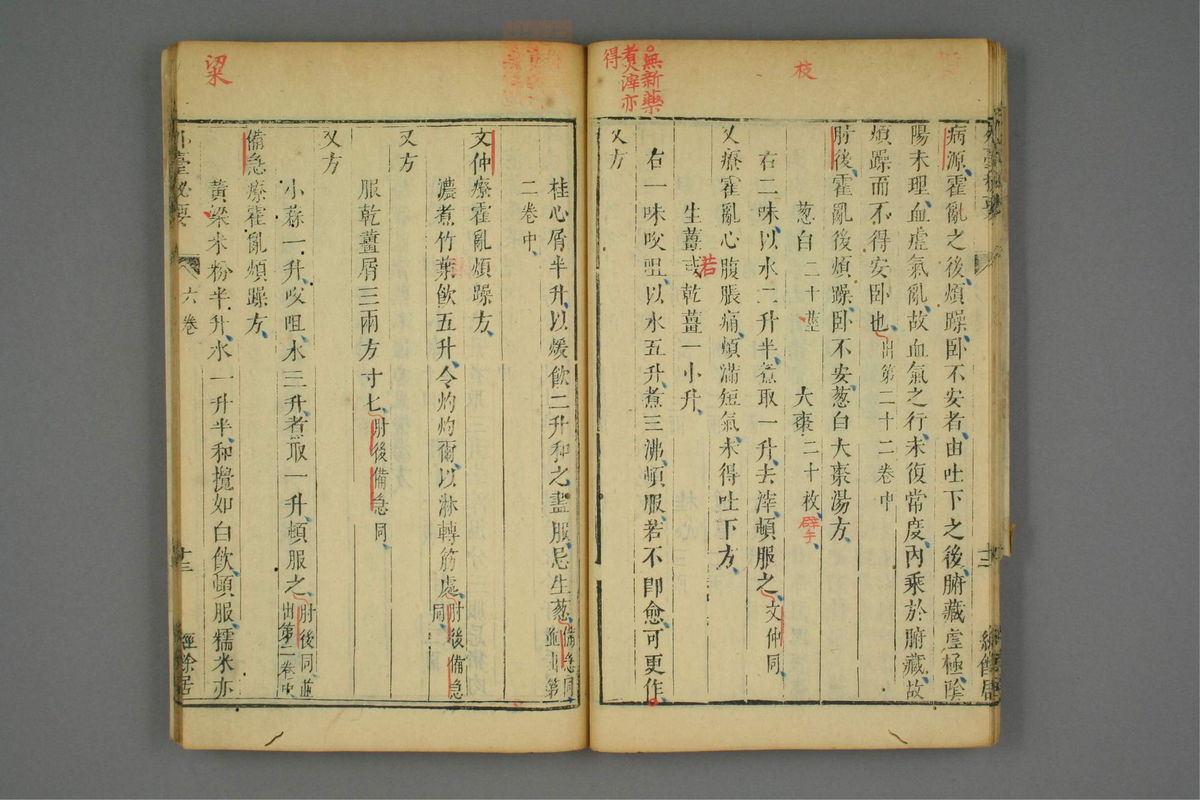 病源霍亂之後煩躁卧不安者由吐下之後腑藏虛極陰
陽未理血虛氣亂故血氣之行未復常度內乘於腑藏故
煩躁而不得安卧也出第二十二卷中
肘後霍亂後煩躁卧不安葱白大棗湯方
葱白二十莖 大棗二十枚
右二味以水二升半煮取一升去滓頓服之文仲同
又療霍亂心腹脹痛煩滿短氣未得吐下方
生薑或乾薑一小升
右一味㕮咀以水五升煮三沸頓服若不卽愈可更作
又方
桂心屑半升以煖飲二升和之盡服忌生葱備急同並出第
二卷中
文仲療霍亂煩躁方
濃煮竹葉飲五升令灼灼爾以淋轉筋處肘後備急同
又方
服乾薑屑三兩方寸匕肘後備急同
又方
小蒜一升㕮咀水三升煮取一升頓服之肘後同並出第二卷中
備急療霍亂煩躁方
黃粱米粉半升水一升半和攪如白飲頓服糯米亦
外臺秘要
六卷
十三
經餘居
無新藥
煮滓亦
得
枝
若
擘
粱